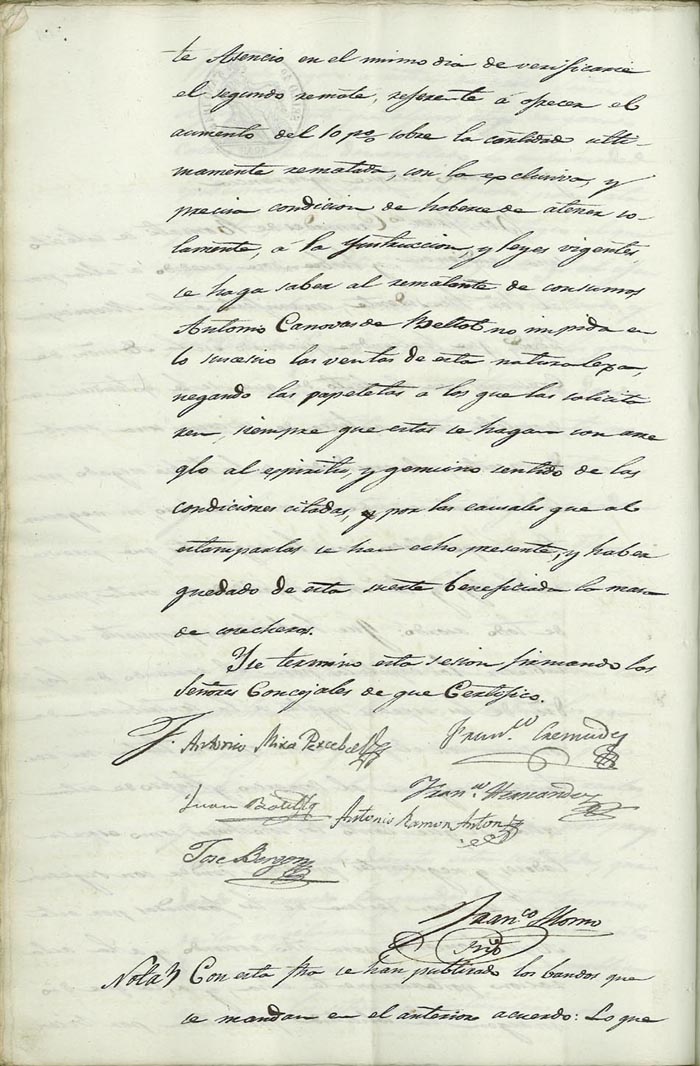 te Asencio en el mimo dia de verificarse
el segundo remate, referente á ofrecer el
aumento del 10 p% sobre la cantidad ulti-
mamente rematada, con la exclusiva, y
precisa condicion de haberse de atener so-
lamente, a la Ynstruccion, y leyes vigentes,
se haga saber al rematante de consumos
Antonio Canovas de Beltot no impida en
lo sucesivo las ventas de esta naturaleza,
negando las papeletas a los que las solicita
ren, siempre que estas se hagan con arre
glo al espiritu, y genuino sentido de las
condiciones citadas, y por las causales que al
estamparlas se han echo presente, y haber
quedado de esta suerte beneficiada la masa
de cosecheros.
Y se termino esta sesion firmando los
Señores Concejales de que Certifico.
Antonio Mira Perceval
Fran.co Cremades
Juan
Fran.co Hernandez
Antonio Ramon Anton
Jose
Fran.co
Srio
Nota Con esta fha se han publicado los bandos que
se mandan en el anterior acuerdo: Lo que